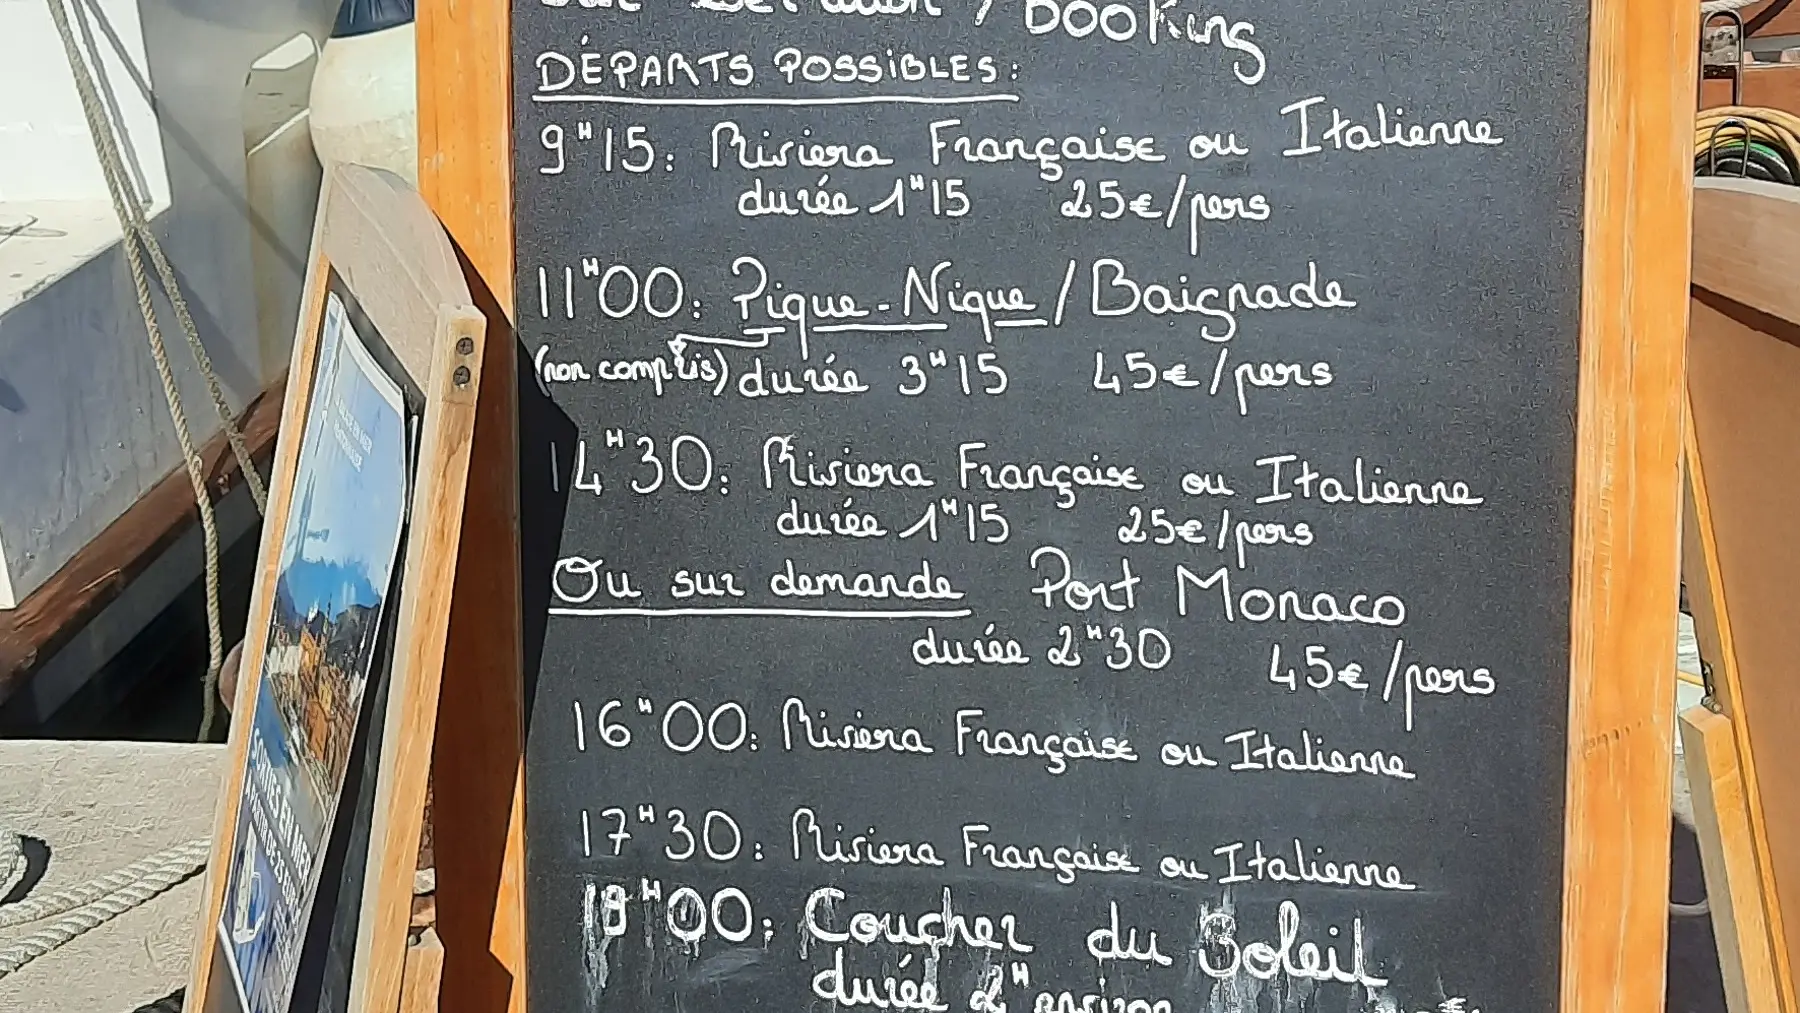 / Booking
DÉPARTS POSSIBLES:
9H15: Riviera Française ou Italienne
durée 1H15 25€/pers
11H00: Pique-Nique / Baignade
(non compris) durée 3H15 45€/pers
14H30: Riviera Française ou Italienne
durée 1H15 25€/pers
Ou sur demande Port Monaco
durée 2H30 45€/pers
16H00: Riviera Française ou Italienne
17H30: Riviera Française ou Italienne
H00: Coucher du Soleil
durée 2H environ
SORTIES EN MER